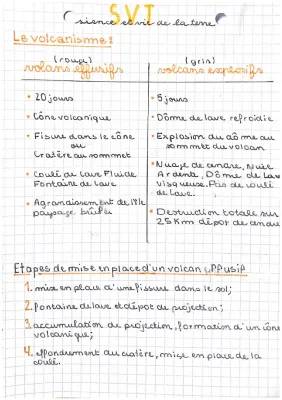 SVT
sience et vie de la terre
Le volcanisme:
(rouge)
volcans effusifs
(gris)
volcans explosifs
• 20 jours
• 5 jours
• Cône volcanique
• Dôme de lave refroidie
• Fissure dans le cône
ou
Cratère au sommet
• Explosion du dôme au
sommet du volcan
• Coulé de Lave Fluide
Fontaine de Lave
• Nuage de cendre, Nuée
Ardente, Dôme de Lav
visqueuse. Pas de coulé
de Lave.
• Agranaissement de l'île
paysage brûlés
• Destruction totale sur
25 Km dépot de cendre
Etapes de mise en place d'un volcan effusif
1. mise en place d'une fissure dans le sol;
2. fontaine de lave et dépot de projection;
3. accumulation de projection, formation d'un cône
volcanique;
4. effondrement du cratère, mise en place de la
coulé.